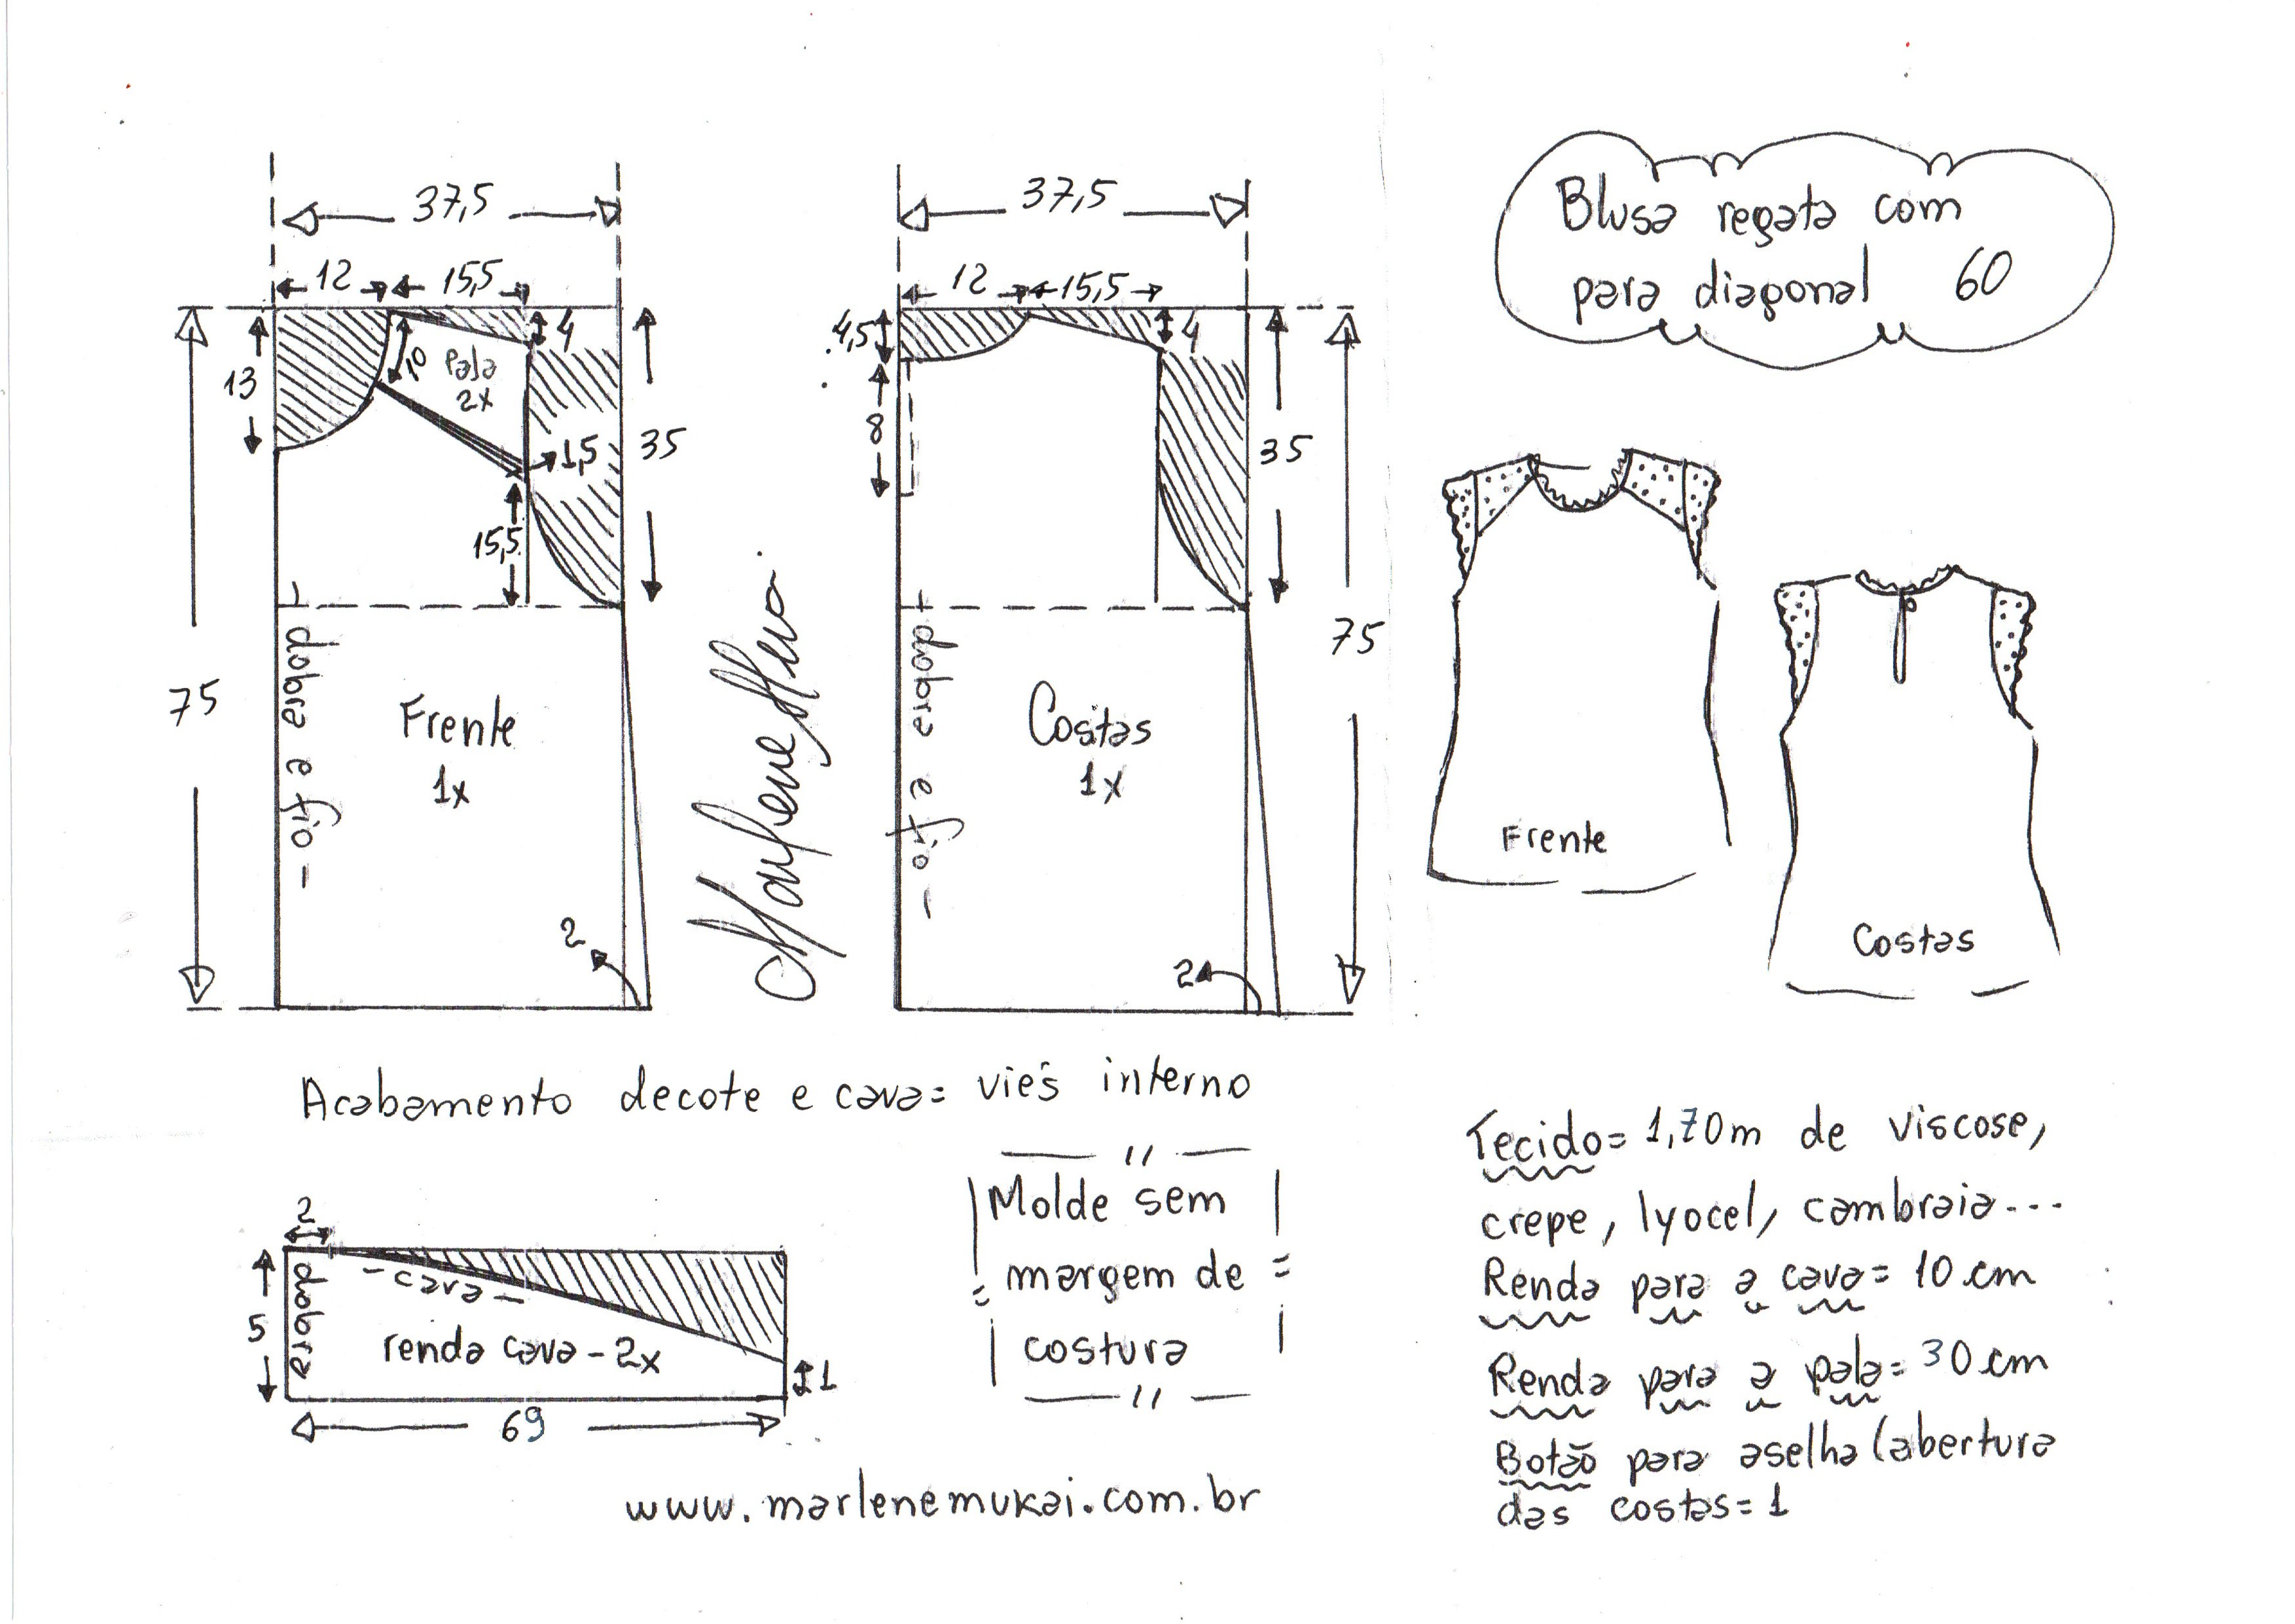 37,5
12
15,5
13
10
Pala
2x
4
1,5
15,5
35
75
dobra e fio
Frente
1x
2
37,5
12
15,5
4,5
8
4
35
75
dobra e fio
Costas
1x
2
Blusa regata com
para diagonal 60
Frente
Costas
Acabamento decote e cava= viés interno
2
5
dobra
- cava -
renda cava - 2x
1
69
Molde sem
margem de
costura
www.marlenemukai.com.br
Tecido= 1,70m de viscose,
crepe, lyocel, cambraia...
Renda para a cava= 10 cm
Renda para a pala= 30 cm
Botão para aselha (abertura
das costas= 1